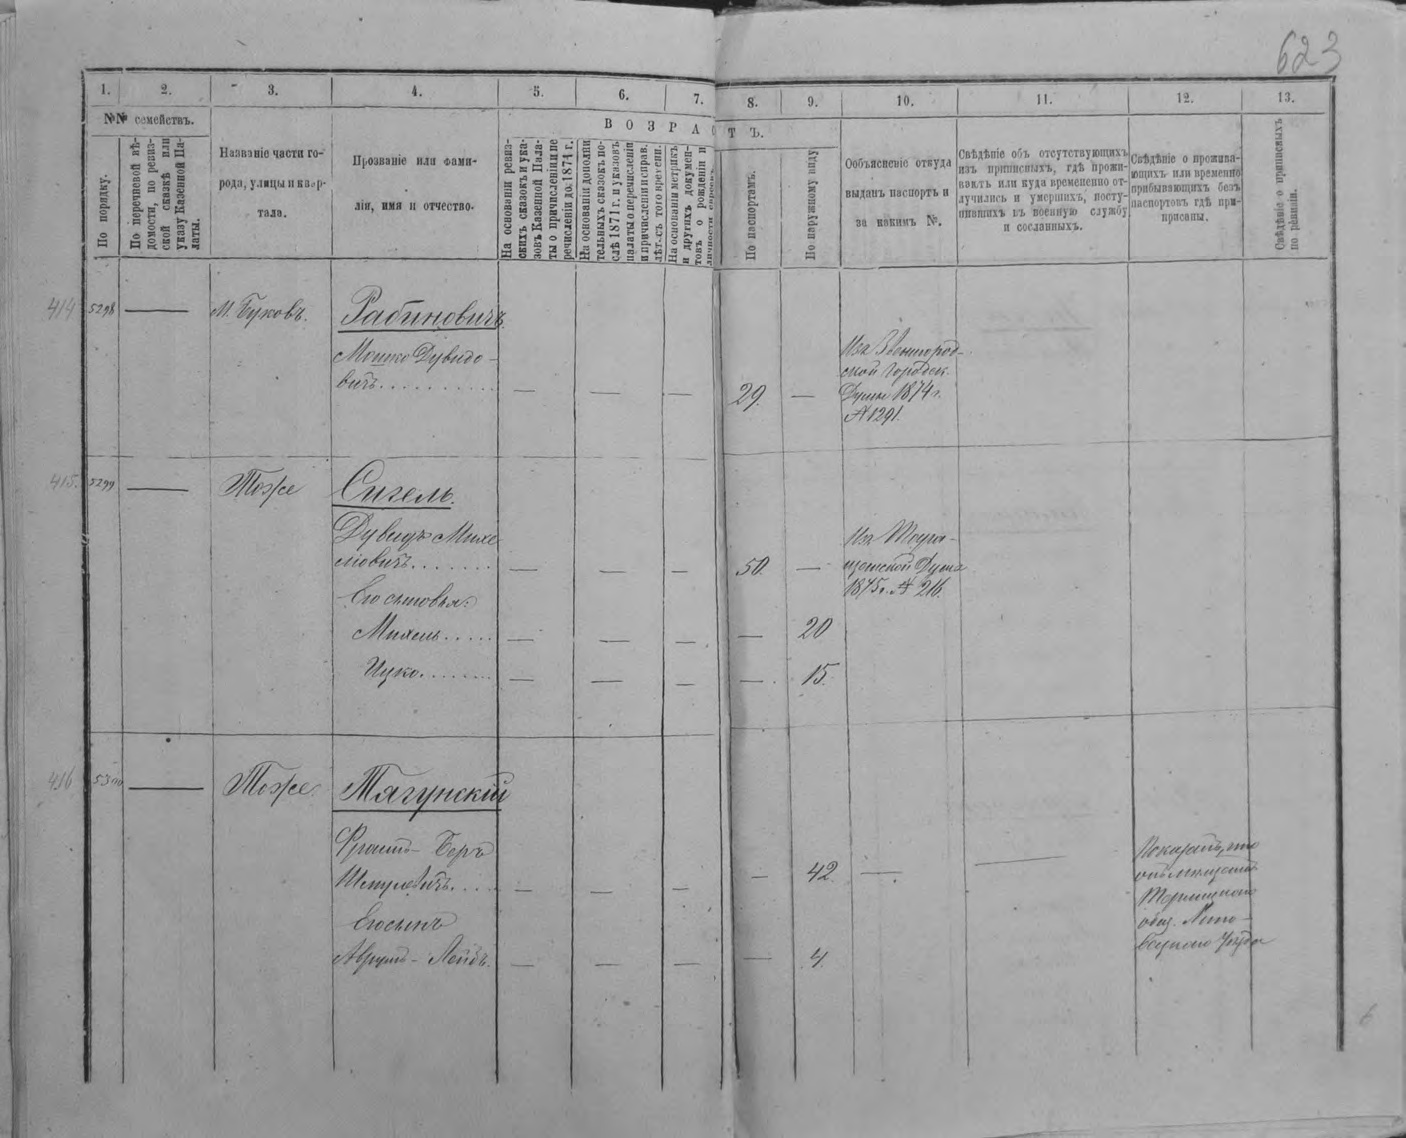 623
1. 2. 3. 4. 5. 6. 7. 8. 9. 10. 11. 12. 13.
№№ семействъ.
ВОЗРАСТЪ.
По порядку.
По перечневой вѣ-
домости, по ревиз-
ской сказкѣ или
указу Казенной Па-
латы.
Названіе части го-
рода, улицы и квар-
тала.
Прозваніе или фами-
лія, имя и отчество.
На основаніи ревиз-
скихъ сказокъ и ука-
зовъ Казенной Пала-
ты о причисленіи и пе
речисленіи до 1874 г.
На основаніи дополни
тельныхъ сказокъ по-
слѣ 1871 г. и указовъ
палаты о перечисленіи
и причисленіи и справ.
лѣт-съ того времени.
На основаніи метрикъ
и другихъ докумен-
товъ о рожденіи и
личности евреевъ.
По паспортамъ.
По наружному виду
Объясненіе откуда
выданъ паспортъ и
за какимъ №.
Свѣдѣніе объ отсутствующихъ
изъ приписныхъ, гдѣ прожи-
ваютъ или куда временно от-
лучились и умершихъ, посту-
пившихъ въ военную службу
и сосланныхъ.
Свѣдѣніе о прожива-
ющихъ или временно
прибывающихъ безъ
паспортовъ гдѣ при-
писаны.
Свѣдѣніе о приписныхъ
по раввін.
414 5298 — М. Буковъ. Рабиновичъ
Мошко Дувидо-
вичъ. . . . . . . . . . — — — 29. —
Изъ Звенигород-
ской Городск.
Думы 1874 г.
№ 1291.
415. 5299 — Тоже Сигель.
Дувидъ Михе
левичъ. . . . . . . — — — 50. —
1875 г. № 216.
Его сыновья:
Михель . . . . . — — — — 20
Ицко. . . . . . . — — — — 15.
416 5300 — Тоже. Тягунскій
Фроимъ - Беръ
Шмулевичъ. . . . — — — — 42 — —
Его сынъ
Аврумъ - Лейбъ. — — — — 4.
Показалъ, что